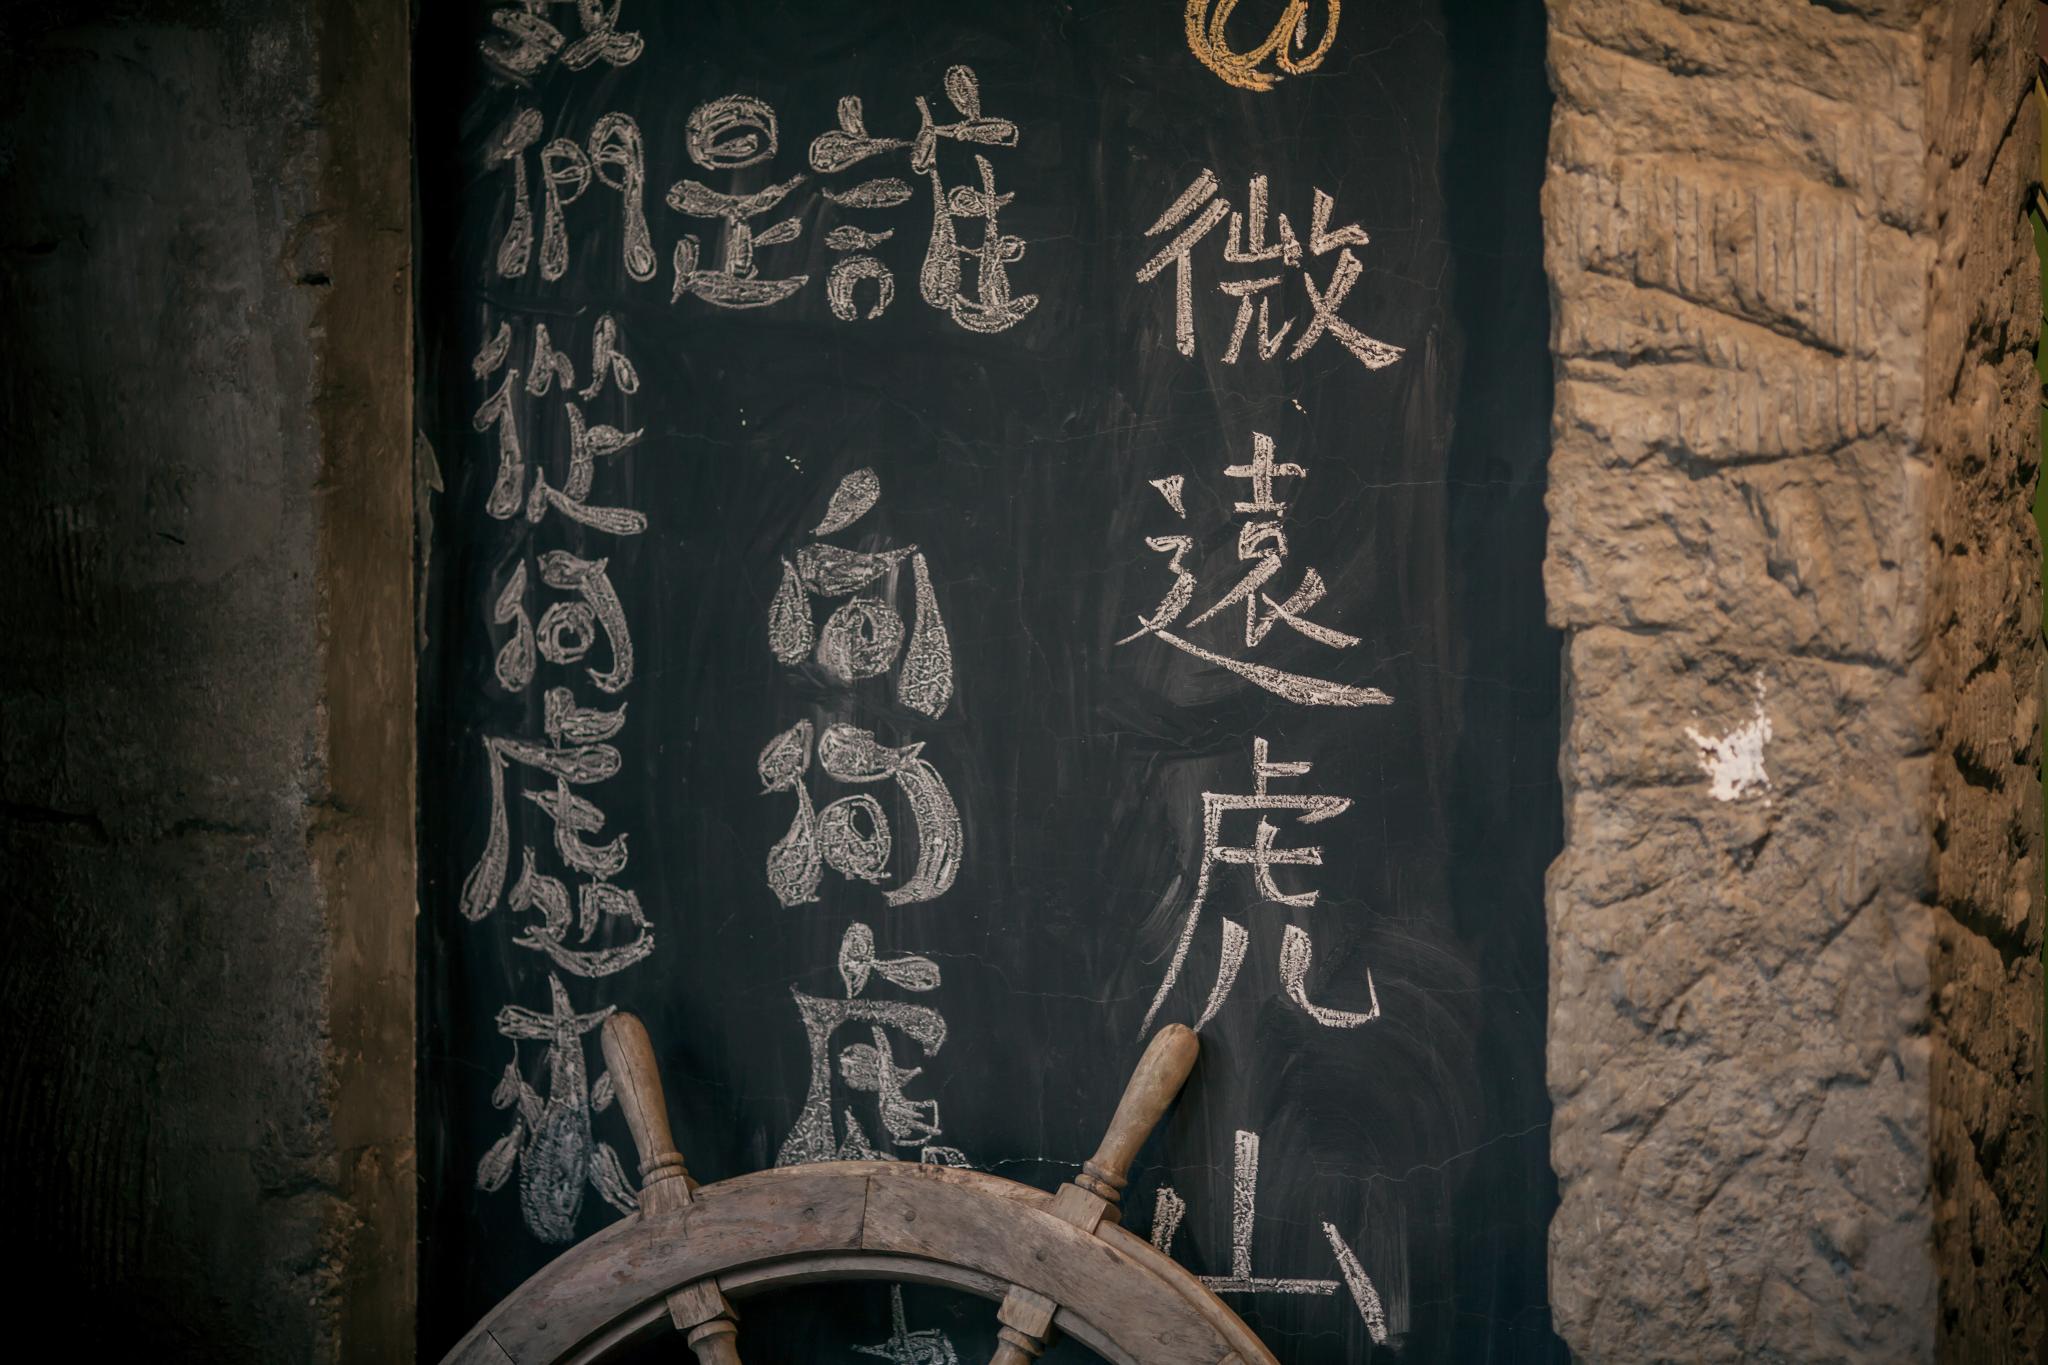 @
微遠虎山
誰是
向何處
我們從何處來